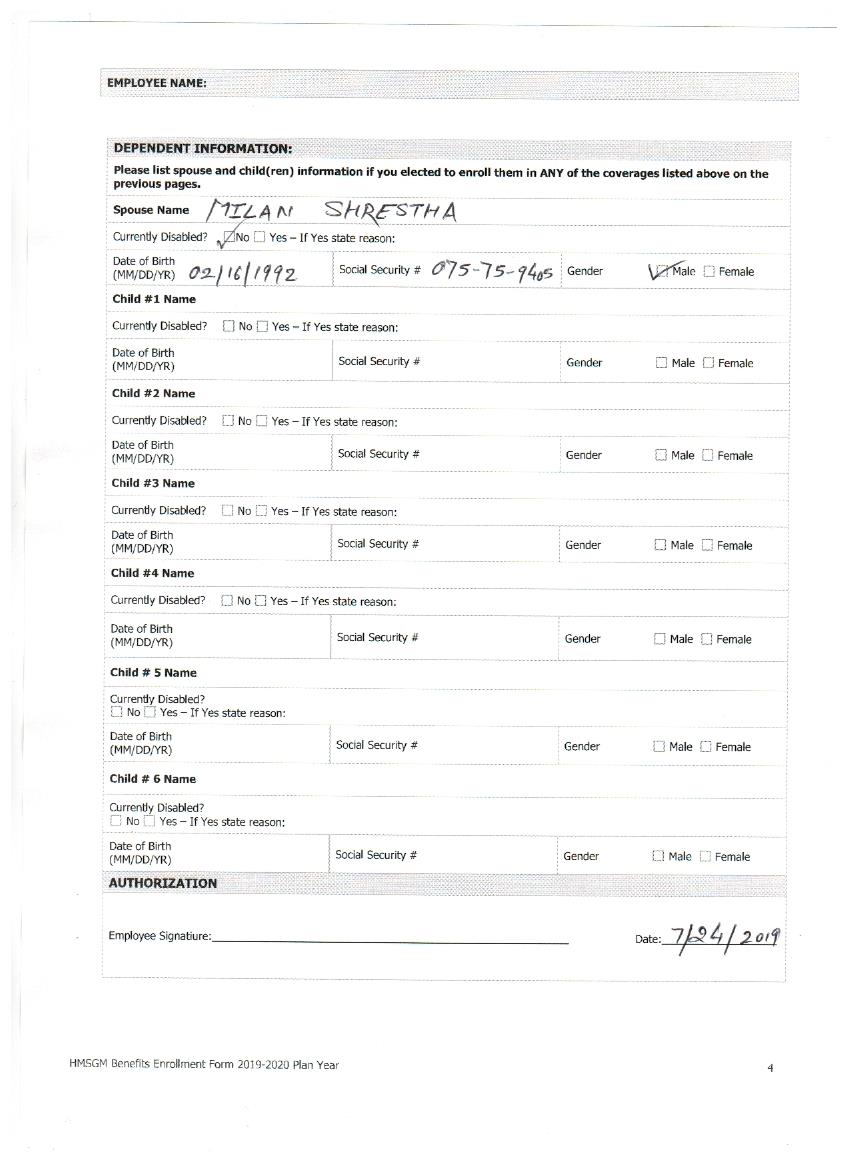 EMPLOYEE NAME:
DEPENDENT INFORMATION:
Please list spouse and child(ren) information if you elected to enroll them in ANY of the coverages listed above on the
previous pages.
Spouse Name MILAN SHRESTHA
Currently Disabled? ☑ No ☐ Yes – If Yes state reason:
Date of Birth
(MM/DD/YR) 02/16/1992 Social Security # 075-75-9405 Gender ☑ Male ☐ Female
Child #1 Name
Currently Disabled? ☐ No ☐ Yes – If Yes state reason:
Date of Birth
(MM/DD/YR) Social Security # Gender ☐ Male ☐ Female
Child #2 Name
Currently Disabled? ☐ No ☐ Yes – If Yes state reason:
Date of Birth
(MM/DD/YR) Social Security # Gender ☐ Male ☐ Female
Child #3 Name
Currently Disabled? ☐ No ☐ Yes – If Yes state reason:
Date of Birth
(MM/DD/YR) Social Security # Gender ☐ Male ☐ Female
Child #4 Name
Currently Disabled? ☐ No ☐ Yes – If Yes state reason:
Date of Birth
(MM/DD/YR) Social Security # Gender ☐ Male ☐ Female
Child # 5 Name
Currently Disabled?
☐ No ☐ Yes – If Yes state reason:
Date of Birth
(MM/DD/YR) Social Security # Gender ☐ Male ☐ Female
Child # 6 Name
Currently Disabled?
☐ No ☐ Yes – If Yes state reason:
Date of Birth
(MM/DD/YR) Social Security # Gender ☐ Male ☐ Female
AUTHORIZATION
Employee Signatiure: Date: 7/24/2019
HMSGM Benefits Enrollment Form 2019-2020 Plan Year 4